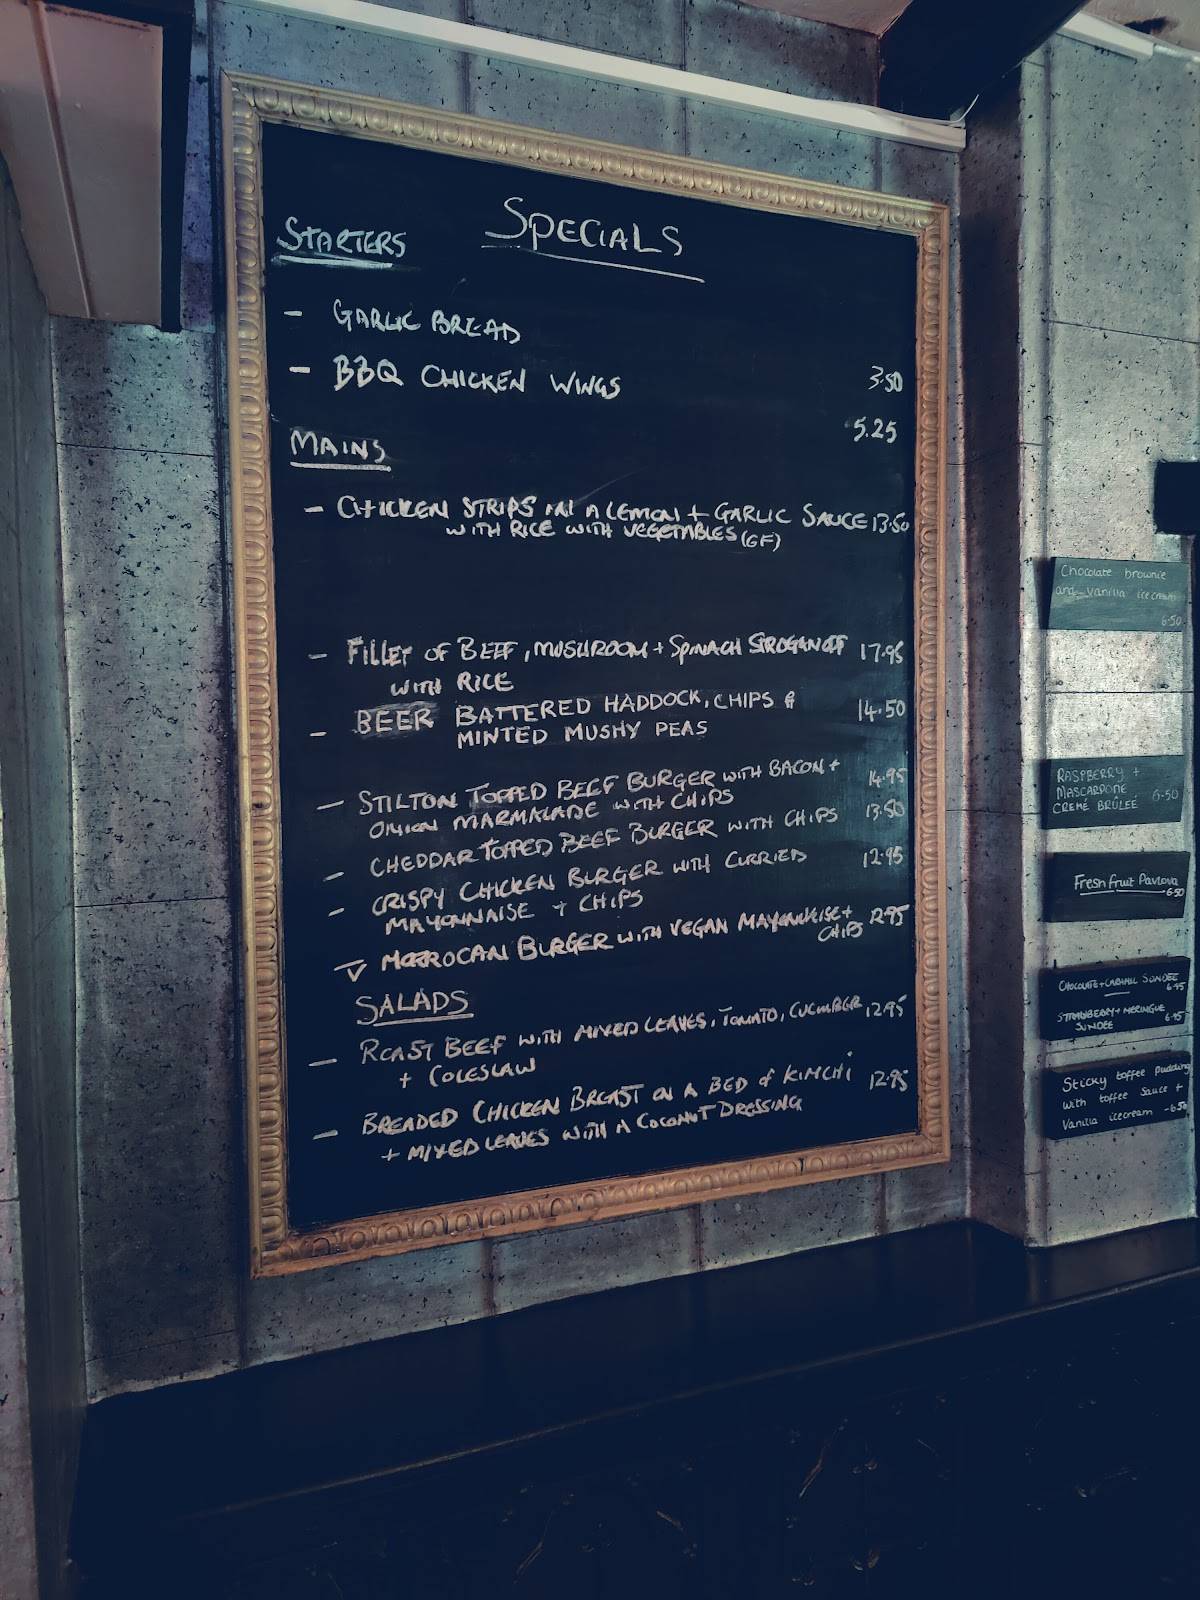 SPECIALS
STARTERS
- GARLIC BREAD
- BBQ CHICKEN WINGS 3.50
5.25
MAINS
- CHICKEN STRIPS IN A LEMON + GARLIC SAUCE 13.50
WITH RICE WITH VEGETABLES (GF)
- FILLET OF BEEF, MUSHROOM + SPINACH STROGANOFF 17.95
WITH RICE
- BEER BATTERED HADDOCK, CHIPS & 14.50
MINTED MUSHY PEAS
- STILTON TOPPED BEEF BURGER WITH BACON + 14.95
ONION MARMALADE WITH CHIPS
- CHEDDAR TOPPED BEEF BURGER WITH CHIPS 13.50
- CRISPY CHICKEN BURGER WITH CURRIED 12.95
MAYONNAISE + CHIPS
V MORROCAN BURGER WITH VEGAN MAYONNAISE + 12.95
CHIPS
SALADS
- ROAST BEEF WITH MIXED LEAVES, TOMATO, CUCUMBER 12.95
+ COLESLAW
- BREADED CHICKEN BREAST ON A BED of KIMCHI 12.95
+ MIXED LEAVES WITH A COCONUT DRESSING
Chocolate brownie
and vanilla ice cream
6.50
RASPBERRY +
MASCARPONE 6.50
CREMÉ BRÛLEÉ
Fresh fruit Pavlova
6.50
CHOCOLATE + CARAMEL SUNDEE
6.95
STRAWBERRY + MERINGUE
SUNDEE 6.95
Sticky toffee pudding
with toffee sauce +
Vanilla icecream - 6.50